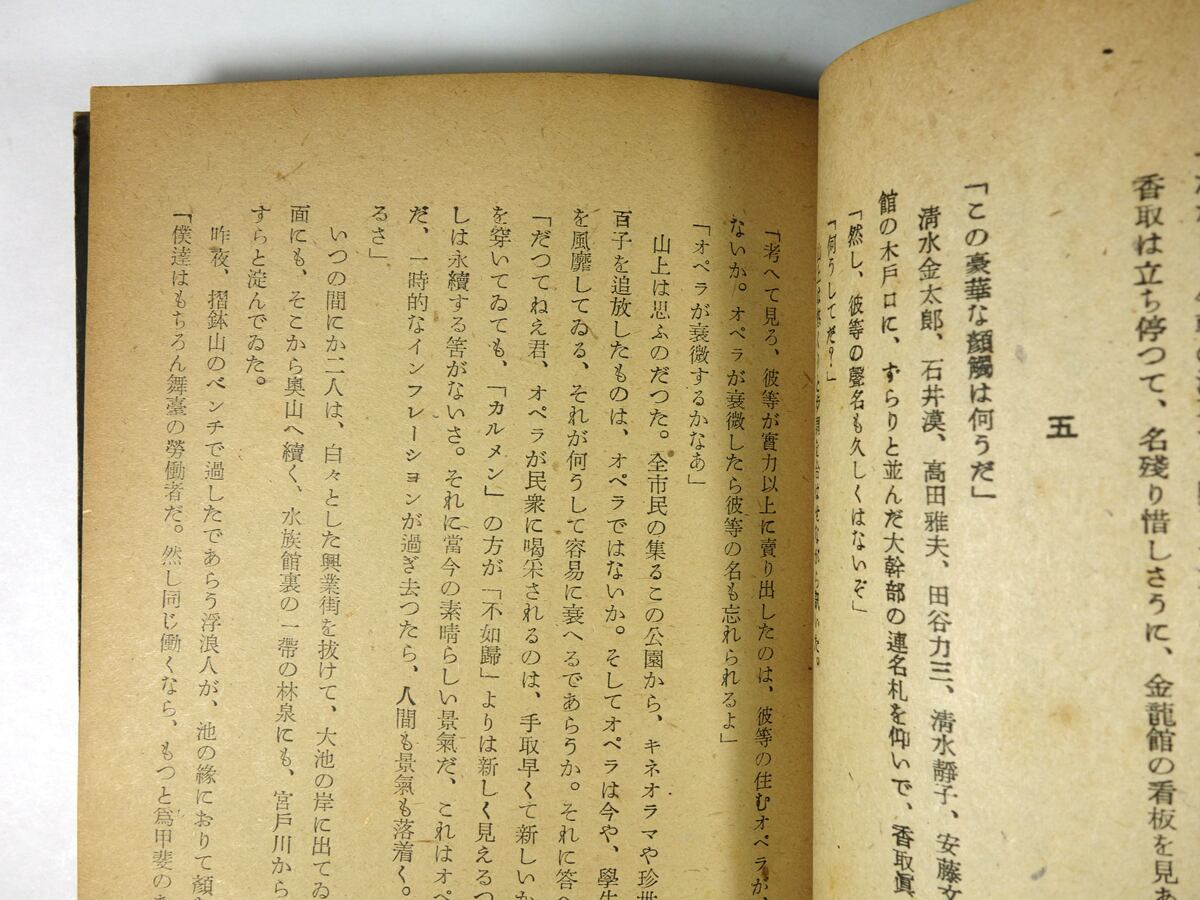 香取は立ち停つて、名殘り惜しさうに、金龍館の看板を見あ
五
「この豪華な顏觸は何うだ」
清水金太郎、石井漠、高田雅夫、田谷力三、清水靜子、安藤文
館の木戸口に、ずらりと並んだ大幹部の連名札を仰いで、香取眞
「然し、彼等の聲名も久しくはないぞ」
「何うしてだ？」
「考へて見ろ、彼等が實力以上に賣り出したのは、彼等の住むオペラが、
ないか。オペラが衰微したら彼等の名も忘れられるよ」
「オペラが衰微するかなあ」
山上は思ふのだつた。全市民の集るこの公園から、キネオラマや珍世
百子を追放したものは、オペラではないか。そしてオペラは今や、學生
を風靡してゐる、それが何うして容易に衰へるであらうか。それに答へ
「だつてねえ君、オペラが民衆に喝采されるのは、手取早くて新しいか
を穿いてゐても、「カルメン」の方が「不如歸」よりは新しく見えるつ
しは永續する筈がないさ。それに當今の素晴らしい景氣だ、これはオペ
だ、一時的なインフレーションが過ぎ去つたら、人間も景氣も落着く。
るさ」
いつの間にか二人は、白々とした興業街を抜けて、大池の岸に出てゐ
面にも、そこから奥山へ續く、水族館裏の一帶の林泉にも、宮戸川から
すらと淀んでゐた。
昨夜、摺鉢山のベンチで過したであらう浮浪人が、池の緣におりて顏
「僕達はもちろん舞臺の勞働者だ。然し同じ働くなら、もつと爲甲斐のあ